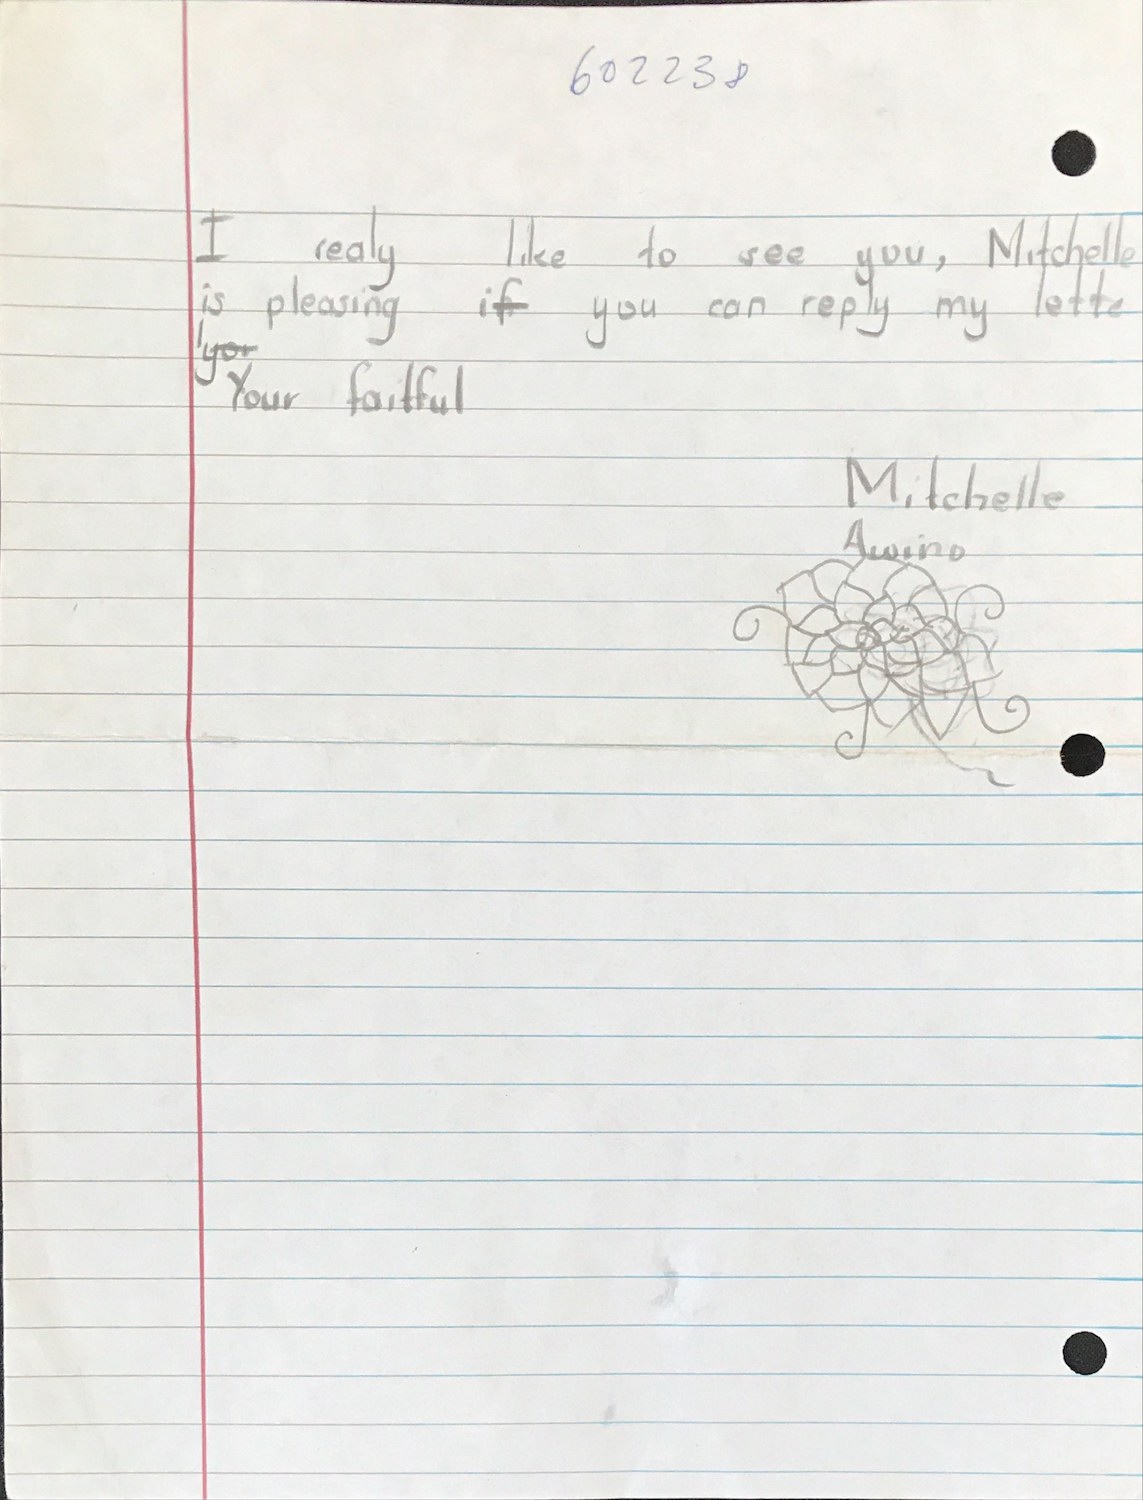 602238
I realy like to see you, Mitchelle
is pleasing if you can reply my lette
yor
Your faitful
Mitchelle
Awino